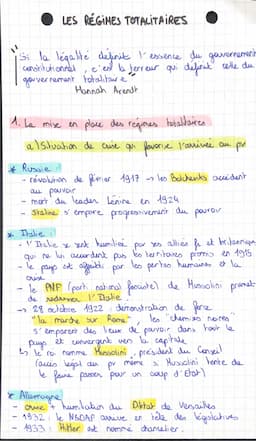 LES RÉGIMES TOTALITAIRES
"Si la légalité définit l'essence du gouvernement
constitutionnel, c'est la terreur qui définit celle du
gouvernement totalitaire"
Hannah Arendt
1. La mise en place des régimes totalitaires
a) Situation de crise qui favorise l'arrivée au pv
* Russie :
- révolution de février 1917 → les Bolcheviks accèdent
au pouvoir
- mort du leader Lénine en 1924
- Staline s'empare progressivement du pouvoir
* Italie :
- l'Italie se sent humiliée par ses alliés fr et britannique
qui ne lui accordent pas les territoires promis en 1915
- le pays est affaibli par les pertes humaines et la
crise
- le PNF (parti national fasciste) de Mussolini promet
de redresser l'Italie
→ 28 octobre 1922 : démonstration de force
"la marche sur Rome" : les chemises noires
s'emparent des lieux de pouvoir dans tout le
pays et convergent vers la capitale
↳ le roi nomme Mussolini président du Conseil
(accès légal au pv même si Mussolini tente de
le faire passer pour un coup d'État)
* Allemagne :
- crise + humiliation du Diktat de Versailles
- 1932 : le NSDAP arrive en tête des législatives
- 1933 : Hitler est nommé chancelier.